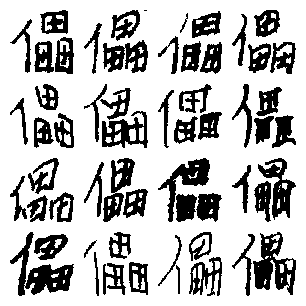 儡儡儡儡
儡儡儡儡
儡儡儡儡
儡儡儡儡